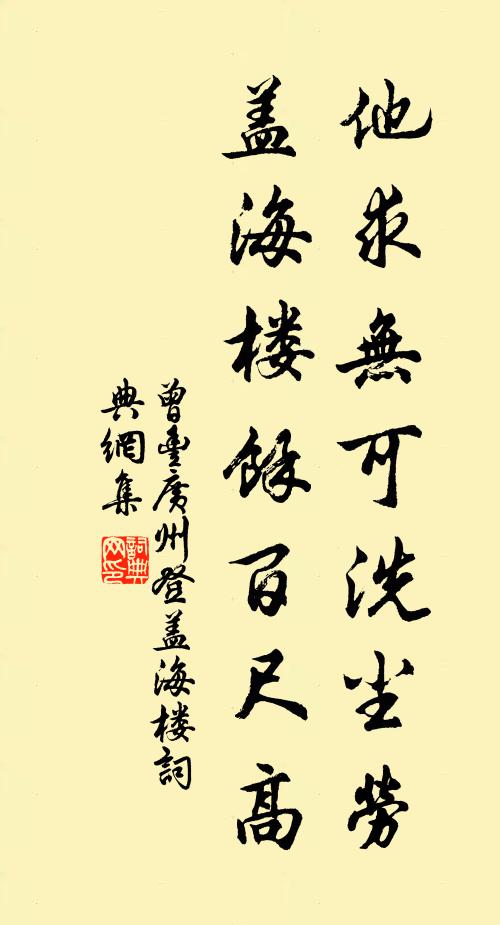 他求無可洗尘勞
盖海楼餘百尺高
曾豊廣州登盖海楼詞
典網集
詞典网印